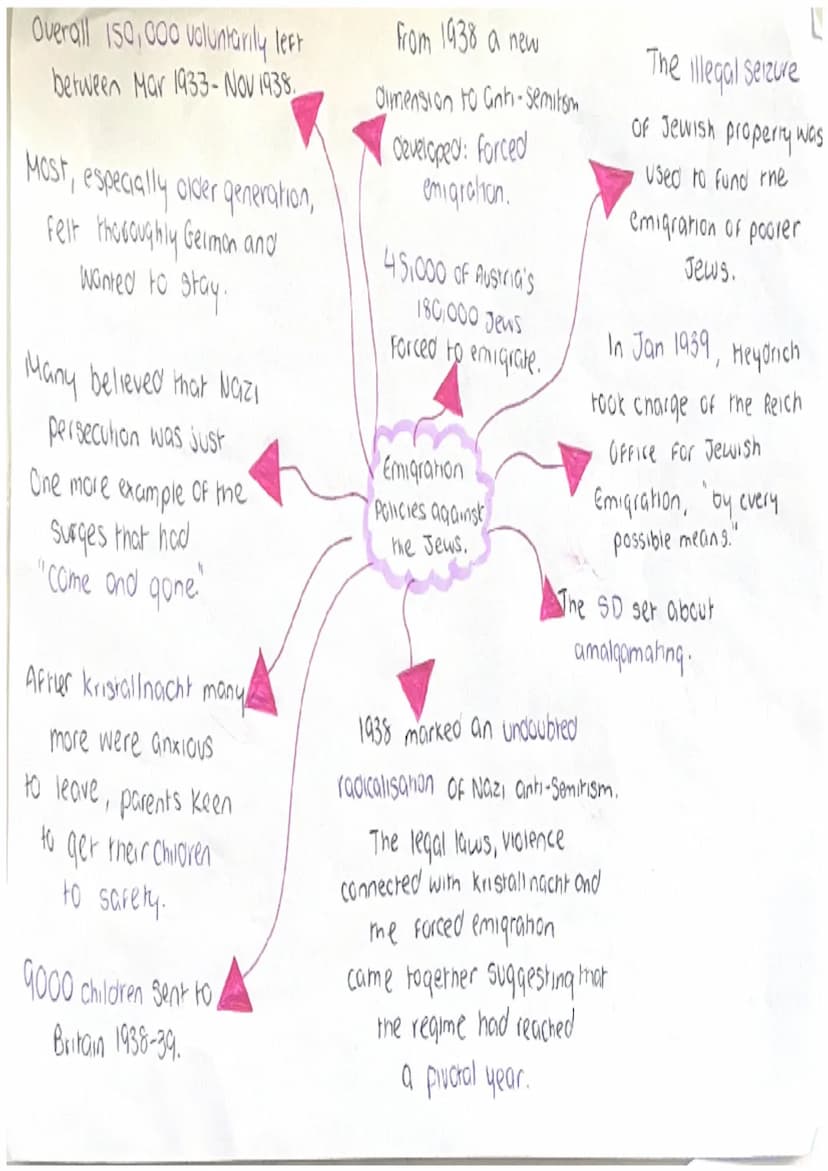 Overall 150,000 voluntarily left
between Mar 1933-Nov 1938.
Most, especially older generation,
felt thoroughly German and
wanted to stay.
Many believed that Nazi
persecution was just
one more example of the
surges that had
"come and gone."
After Kristallnacht many
more were anxious
to leave, parents keen
to get their children
to safety.
9000 children sent to
Britain 1938-39.
From 1938 a new
dimension to anti-semitism
developed: forced
emigration.
45,000 of Austria's
180,000 Jews
forced to emigrate.
Emigration
Policies against
the Jews.
1938 marked an undoubted
radicalisation of Nazi anti-semitism.
The legal laws, violence
connected with Kristallnacht and
the forced emigration
came together suggesting that
the regime had reached
a pivotal year.
The illegal seizure
of Jewish property was
used to fund the
emigration of poorer
Jews.
In Jan 1939, Heydrich
took charge of the Reich
Office for Jewish
Emigration, "by every
possible means."
The SD set about
amalgamating.